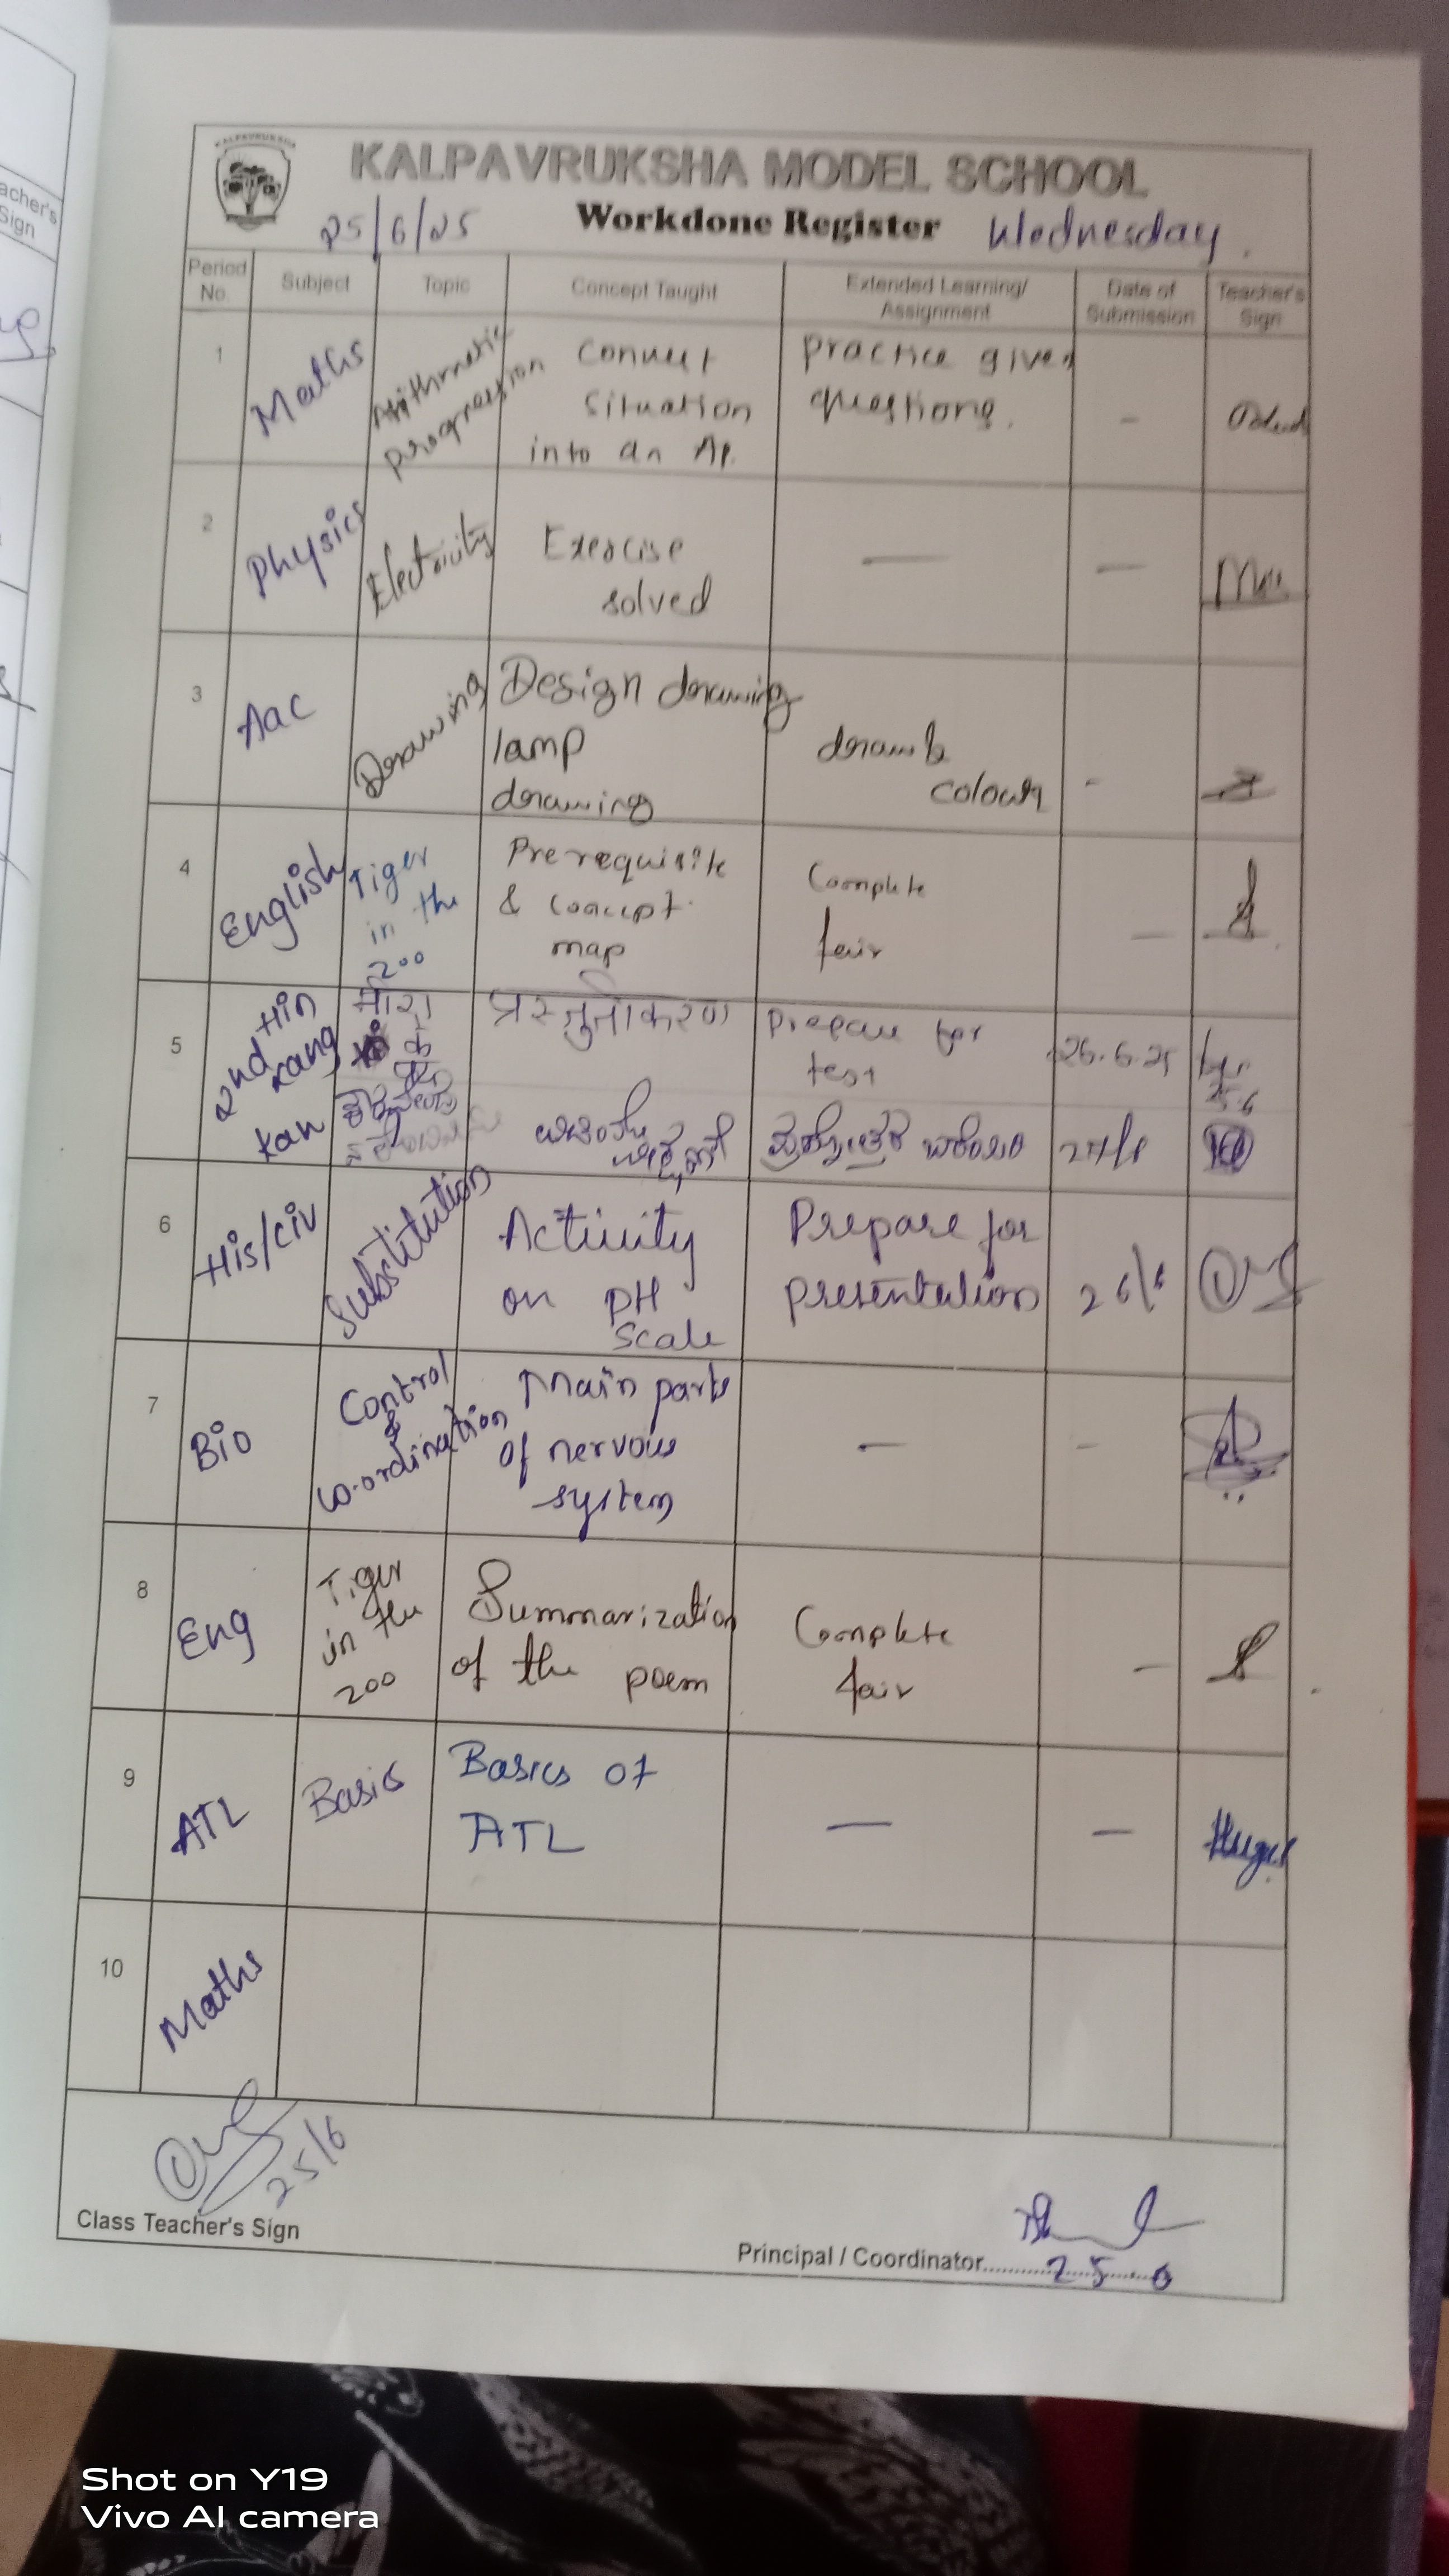 KALPAVRUKSHA
KALPAVRUKSHA MODEL SCHOOL
25/6/25 Workdone Register Wednesday.
Period No. Subject Topic Concept Taught Extended Learning/ Assignment Date of Submission Teacher's Sign
1 Maths Arithmetic progression Convert situation into an AP. Practice given questions. -
2 Physics Electricity Exercise solved — —
3 Aac Drawing Design drawing lamp drawing draw & colour -
4 English Tiger in the zoo Prerequisite & concept map Complete fair —
5 2nd lang Hin प्रस्तुतीकरण Prepare for test 26.6.25
Kan
6 His/civ Substitution Activity on PH Scale Prepare for presentation 26/6
7 Bio Control & Co.ordination Main parts of nervous system — -
8 Eng Tiger in the zoo Summarization of the poem Complete fair —
9 ATL Basics Basics of ATL — —
10 Maths
25/6
Class Teacher's Sign
Principal / Coordinator
25.6
acher's
Sign
Shot on Y19
Vivo AI camera